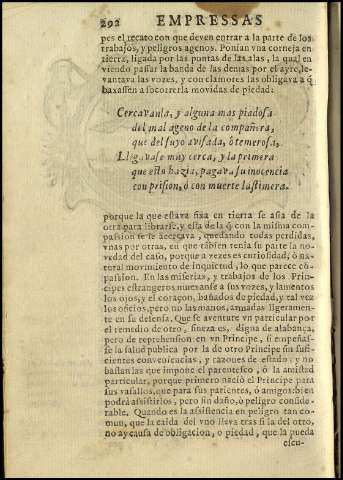 292 EMPRESSAS
pes el recato con que deven entrar a la parte de los
trabajos, y peligros agenos. Ponian vna corneja en
tierra, ligada por las puntas de las alas, la qual en
viendo passar la banda de las demas por el ayre, le-
vantava sus vozes, y con clamores las obligava a q̃
baxassen a socorrerla movidas de piedad:
Cercavanla, y alguna mas piadosa
del mal ageno de la compañera,
que del suyo avisada, ò temerosa,
Llegavase muy cerca, y la primera
que esto hazia, pagava su inocencia
con prision, ò con muerte lastimera.
porque la que estava fixa en tierra se asia de la
otra para librarse, y esta de la q̃ con la misma com-
passion se le acercava, quedando todas perdidas,
vnas por otras, en que tãbien tenia su parte la no-
vedad del caso, porque a vezes es curiosidad, ò na-
tural movimiento de inquietud, lo que parece cõ-
passion. En las miserias, y trabajos de los Prin-
cipes estrangeros muevanse a sus vozes, y lamentos
los ojos, y el coraçon, bañados de piedad, y tal vez
los oficios, pero no las manos, armadas ligeramen-
te en su defensa. Que se aventure vn particular por
el remedio de otro, fineza es, digna de alabança,
pero de reprehension en vn Principe, si empeñas-
se la salud publica por la de otro Principe sin sufi-
cientes conveniencias, y razones de estado: y no
bastan las que impone el parentesco, ò la amistad
particular, porque primero naciò el Principe para
sus vasallos, que para sus parientes, ò amigos: bien
podrà assistirlos, pero sin daño, ò peligro conside-
rable. Quando es la assistencia en peligro tan co-
mun, que la caida del vno lleva tras si la del otro,
no ay causa de obligacion, o piedad, que la pueda
escu-